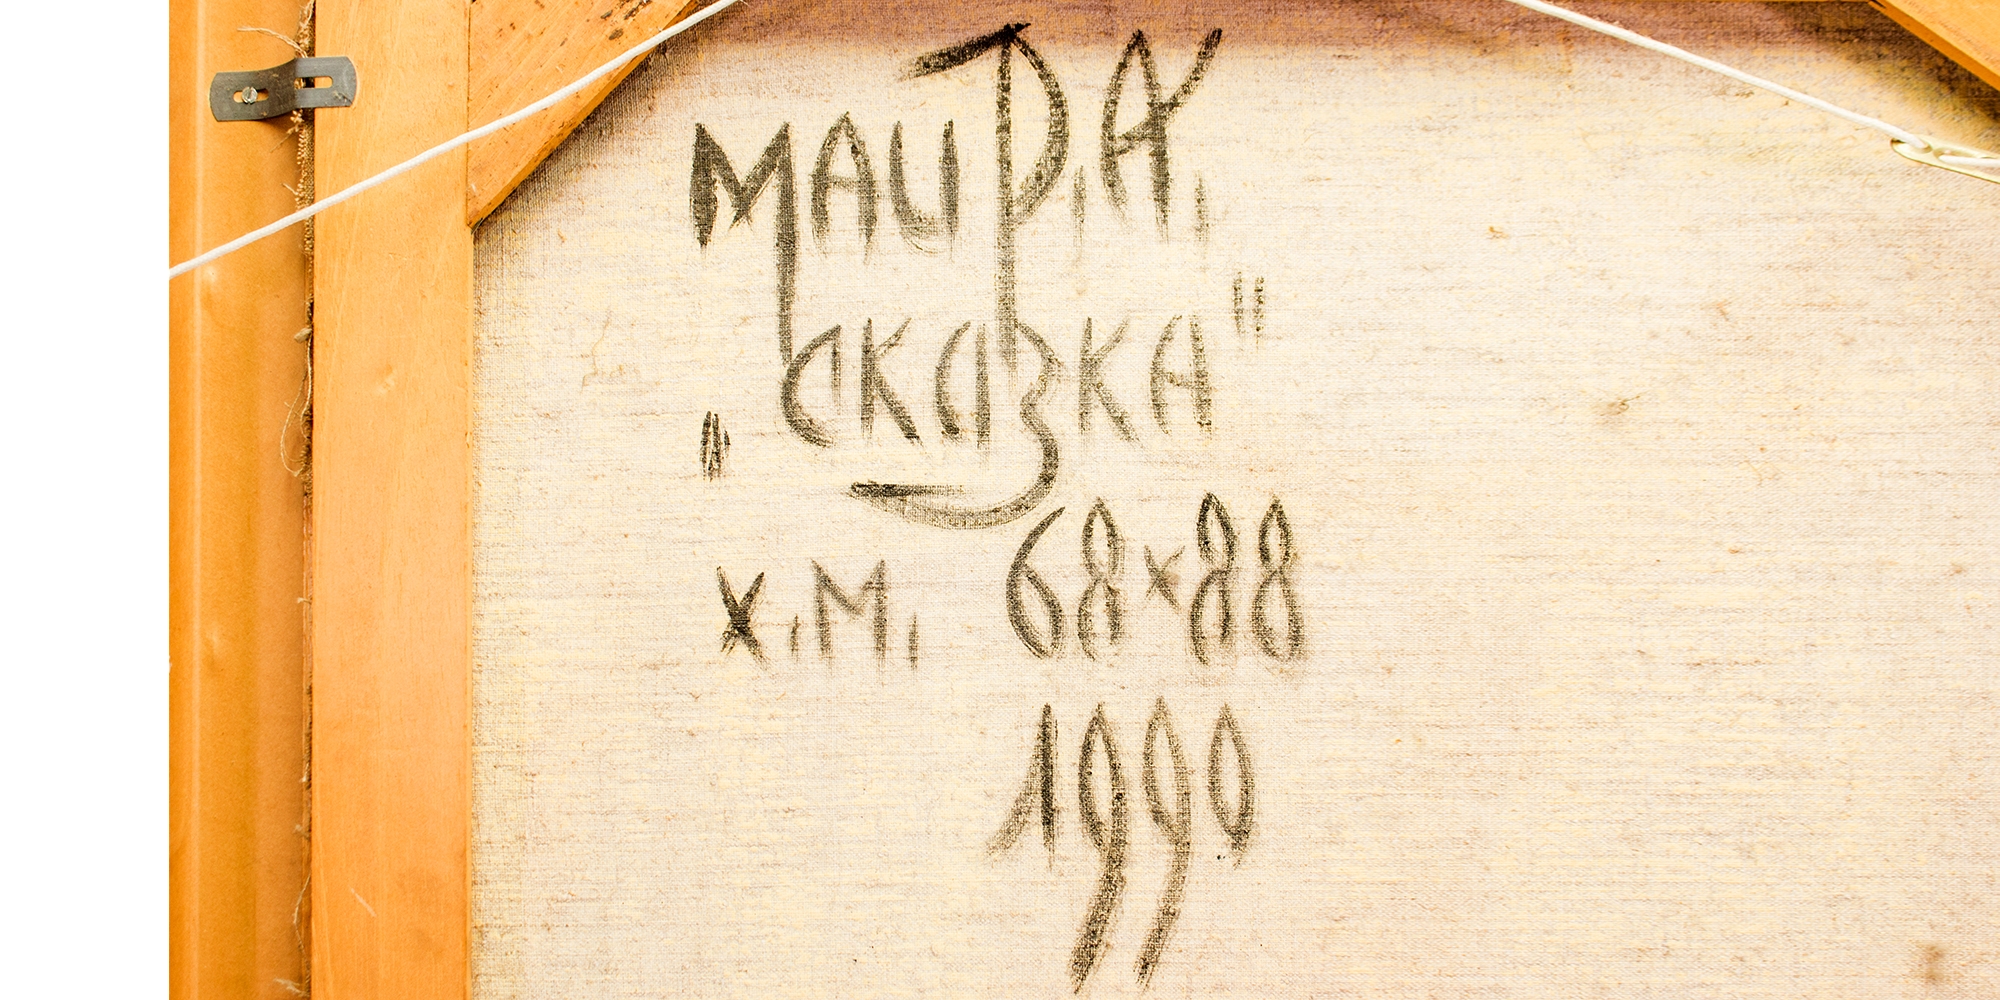 МАИР.А.
„сказка"
х.м. 68х88
1990